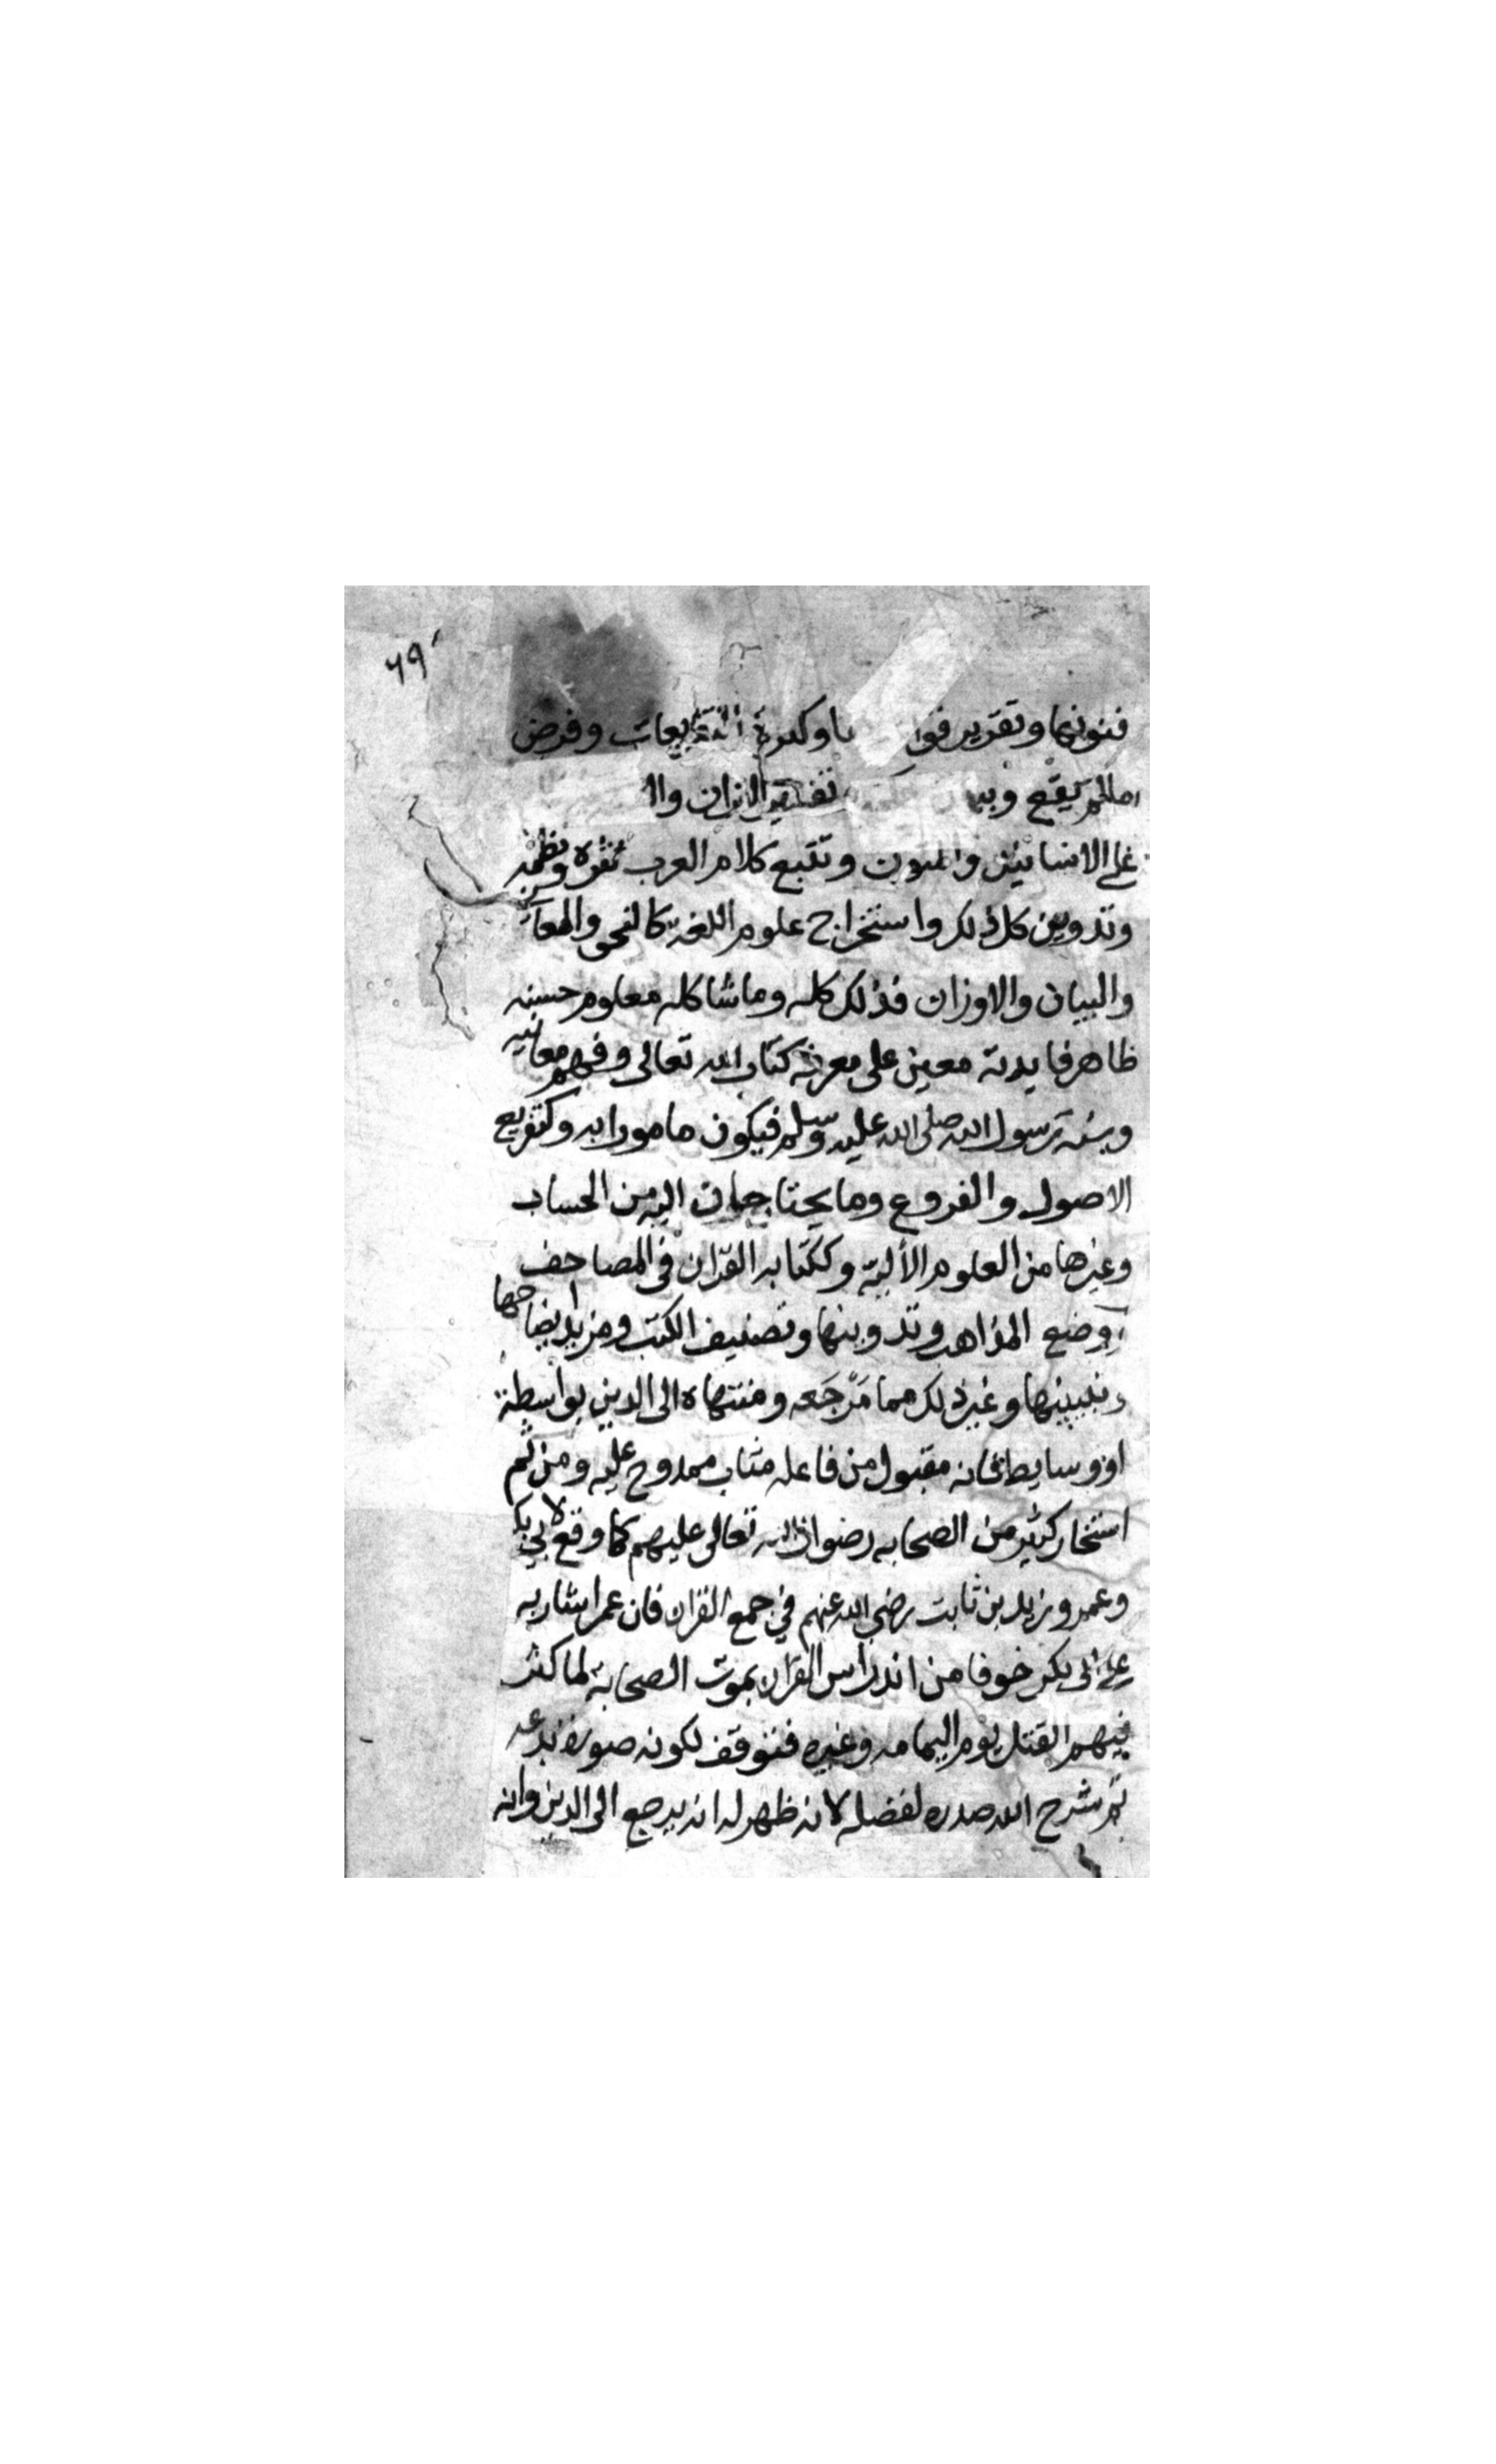 ٦٩
فنونها وتقرير وكثرة التفريعات وفرض
مالم يقع تفسير القران
على الاسانيد والمتون وتتبع كلام العرب نثره ونظمه
وتدوين كل ذلك واستخراج علوم اللغة كالنحو والمعاني
والبيان والاوزان فذلك كله وما شاكله معلوم حسنه
ظاهر فايدته معين على معرفة كتاب الله تعالى وفهم معانيه
وسنة رسول الله صلى الله عليه وسلم فيكون مامورا به وكتفريع
الاصول والفروع وما يحتاجان اليه من الحساب
وغيرها من العلوم الألية وككتابه القران في المصاحف
ووضع المذاهب وتدوينها وتصنيف الكتب ومزيد ايضاحها
وتبيينها وغير ذلك مما مَرْجَعه ومنتهاه الى الدين بواسطة
او وسايط فانه مقبول من فاعله مثاب ممدوح عليه ومن ثم
استخار كثير من الصحابه رضوان الله تعالى عليهم كما وقع لابي بكر
وعمر وزيد بن ثابت رضي الله عنهم في جمع القران فان عمر اشار به
على ابي بكر خوفا من اندراس القران بموت الصحابة لما كثر
فيهم القتل يوم اليمامه وغيره فتوقف لكونه صورة بدعه
ثم شرح الله صدره لفضله لانه ظهر له انه يرجع الى الدين وانه